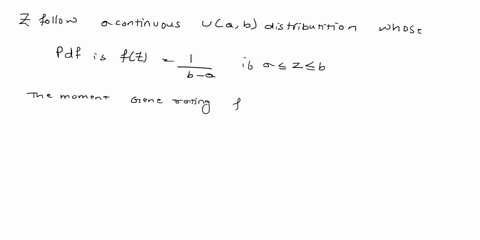 Z follow a continuous U(a, b) distribution whose
Pdf is f(Z) = 1/(b-a) if a ≤ Z ≤ b
The moment Gene rating f